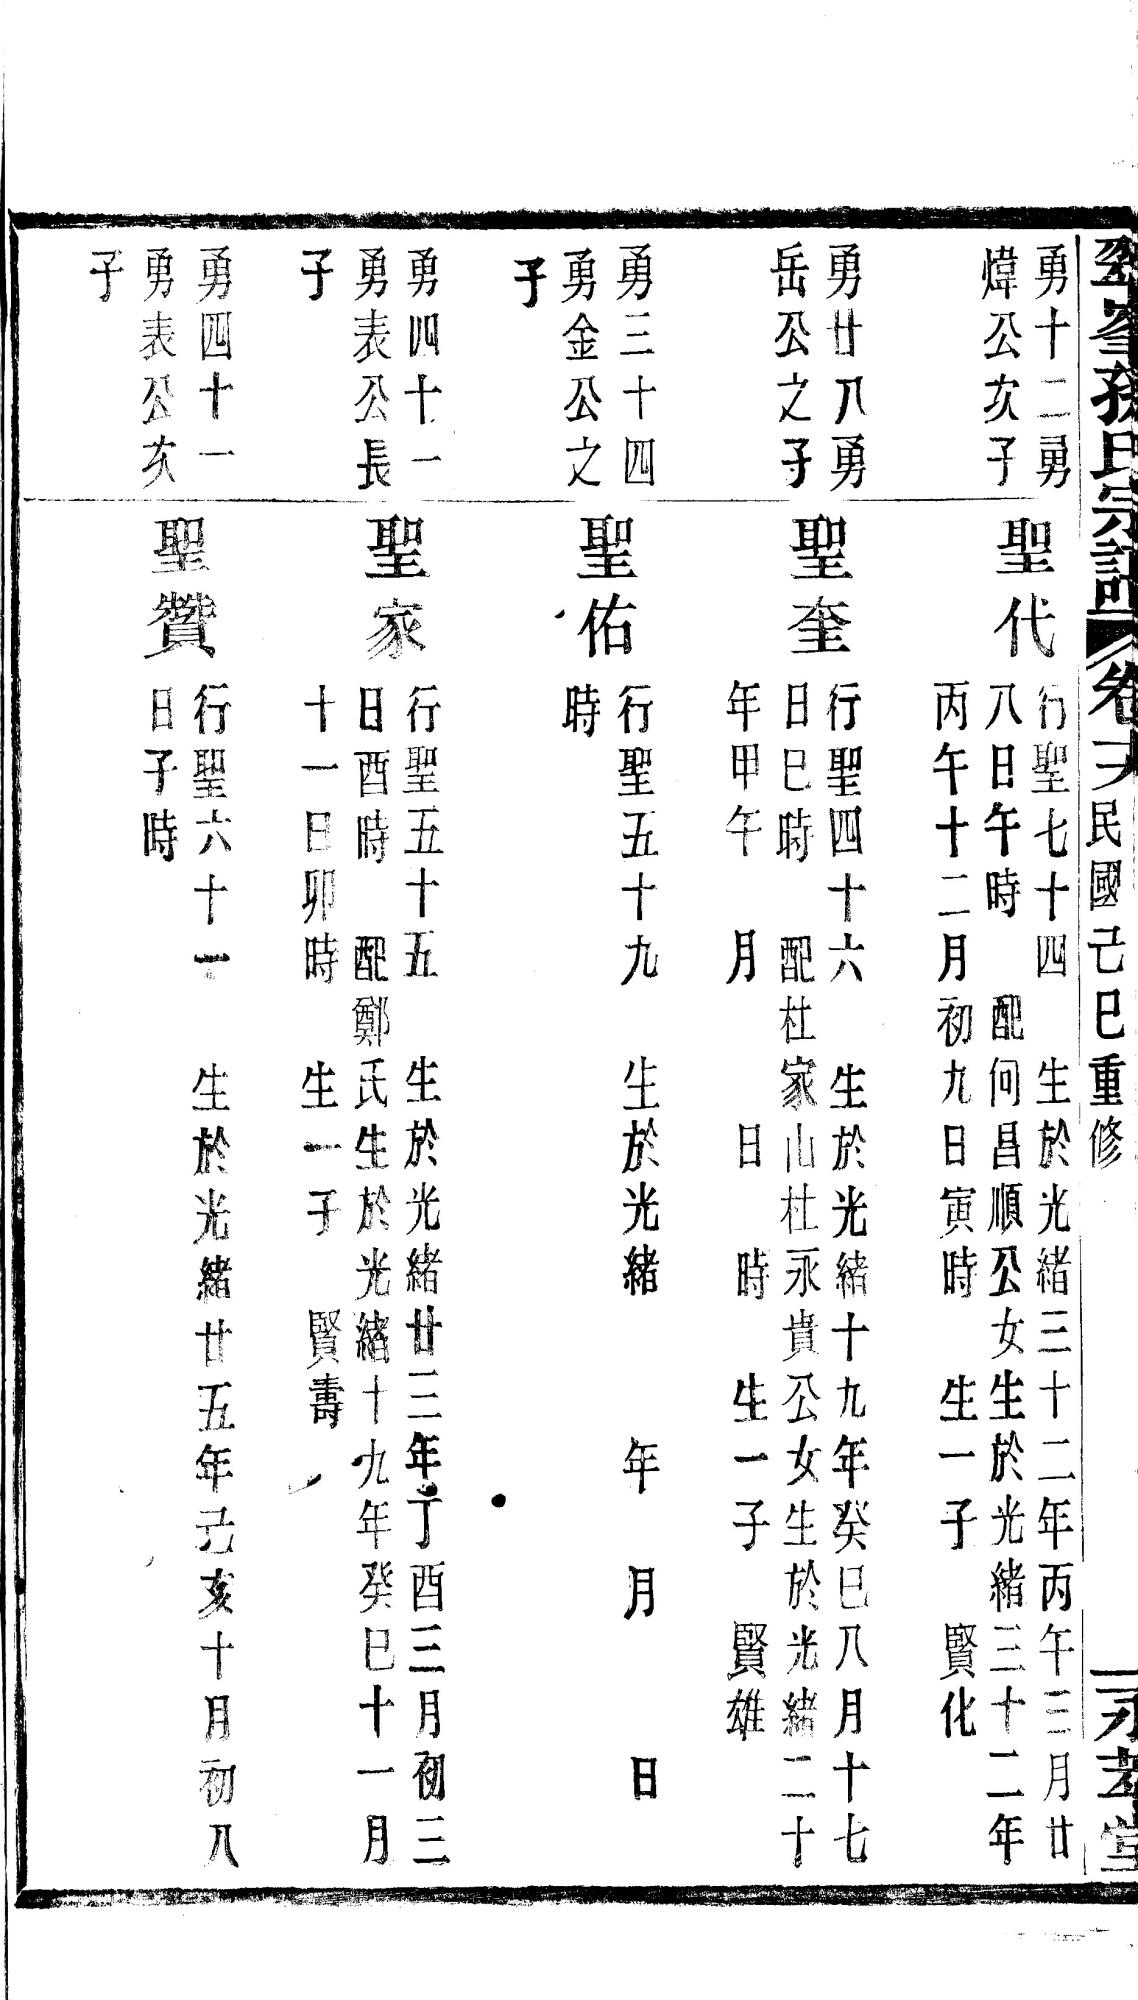 孫氏宗譜 卷 民國己巳重修 永孝堂
勇十二勇
煒公次子
聖代
行聖七十四 生於光緒三十二年丙午三月廿
八日午時 配何昌順公女生於光緒三十二年
丙午十二月初九日寅時 生一子 賢化
勇廿八勇
岳公之子
聖奎
行聖四十六 生於光緒十九年癸巳八月十七
日巳時 配杜家山杜永貴公女生於光緒二十
年甲午 月 日 時 生一子 賢雄
勇三十四
勇金公之
子
聖佑
行聖五十九 生於光緒 年 月 日
時
勇四十一
勇表公長
子
聖家
行聖五十五 生於光緒廿三年丁酉三月初三
日酉時 配鄭氏生於光緒十九年癸巳十一月
十一日卯時 生一子 賢壽
勇四十一
勇表公次
子
聖贊
行聖六十一 生於光緒廿五年己亥十月初八
日子時